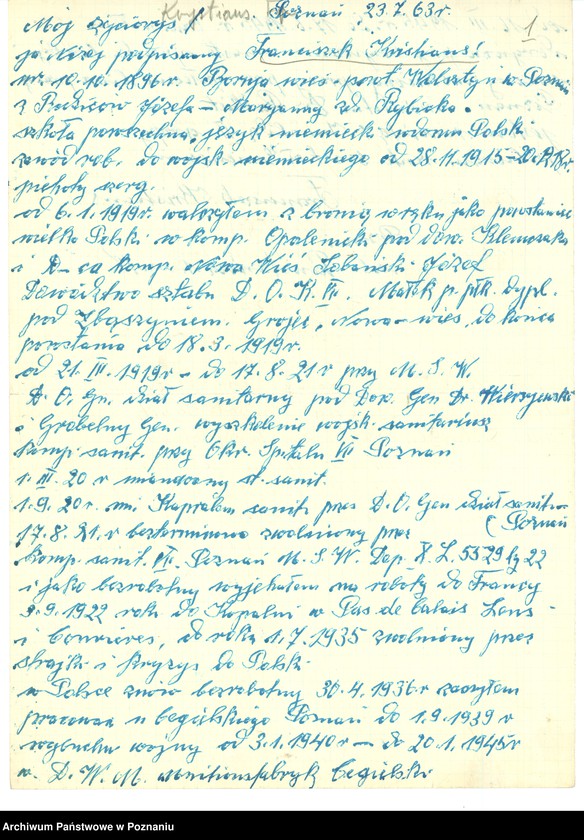 Krystians Poznań 23.7.63r.
1
Mój życiorys!
ja Niżej podpisany Franciszek Kristians!
ur. 10.10.1896r. Boruja wieś powt. Wolsztyn w Poznań
z Rodziców Józefa – Maryanny zd. Rybicka.
szkoła powszechna, język niemiecki w domu Polski
zawód rob. do wojsk. niemieckiego od 28.11.1915–20.
piechoty szereg.
od 6.1.1919r. walczyłem z bronią w ręku jako powstaniec
wielko Polski w komp. Opalenicki pod dow. Klemczaka
i D-ca komp. Nowa Wieś Józef
Dowództwo sztabu D.O.K. VII. Małek p. płk. dypl.
pod Zbąszyniem. Grójec, Nowa-wieś, do końca
powstania do 18.3.1919r.
od 21.III.1919r – do 17.8.21r przy M.S.W.
D.O.Gn. dział sanitarny pod Dow. Gen Dr. Wierzejewski
i Grobelny Gen. wyszkolenie wojsk. sanitariusz
Komp. sanit. przy Okr. Szpitalu VII Poznań
1.III.20r mianowany st. sanit.
1.9.20r. mi Kapralem sanit. przez D.O.Gen dział sanitar.
(Poznań
17.8.21.r bezterminowo zwolniony przez
Komp. sanit. VII. Poznań M.S.W. Dep. X. L. 5529 22
i jako bezrobotny wyjechałem na roboty do Francy
9.9.1922 roku do Kopalni w Pas de Calais Lens
i Courrieres, do roku 1.7.1935 zwolniony przez
strajk i kryzys do Polski
w Polsce znów bezrobotny 30.4.1936.r zacząłem
pracować u Cegielskiego Poznań do 1.9.1939r
wybuchu wojny od 3.1.1940r – do 20.1.1945r
w. D.W.M. munitionsfabryk Cegielski
Archiwum Państwowe w Poznaniu